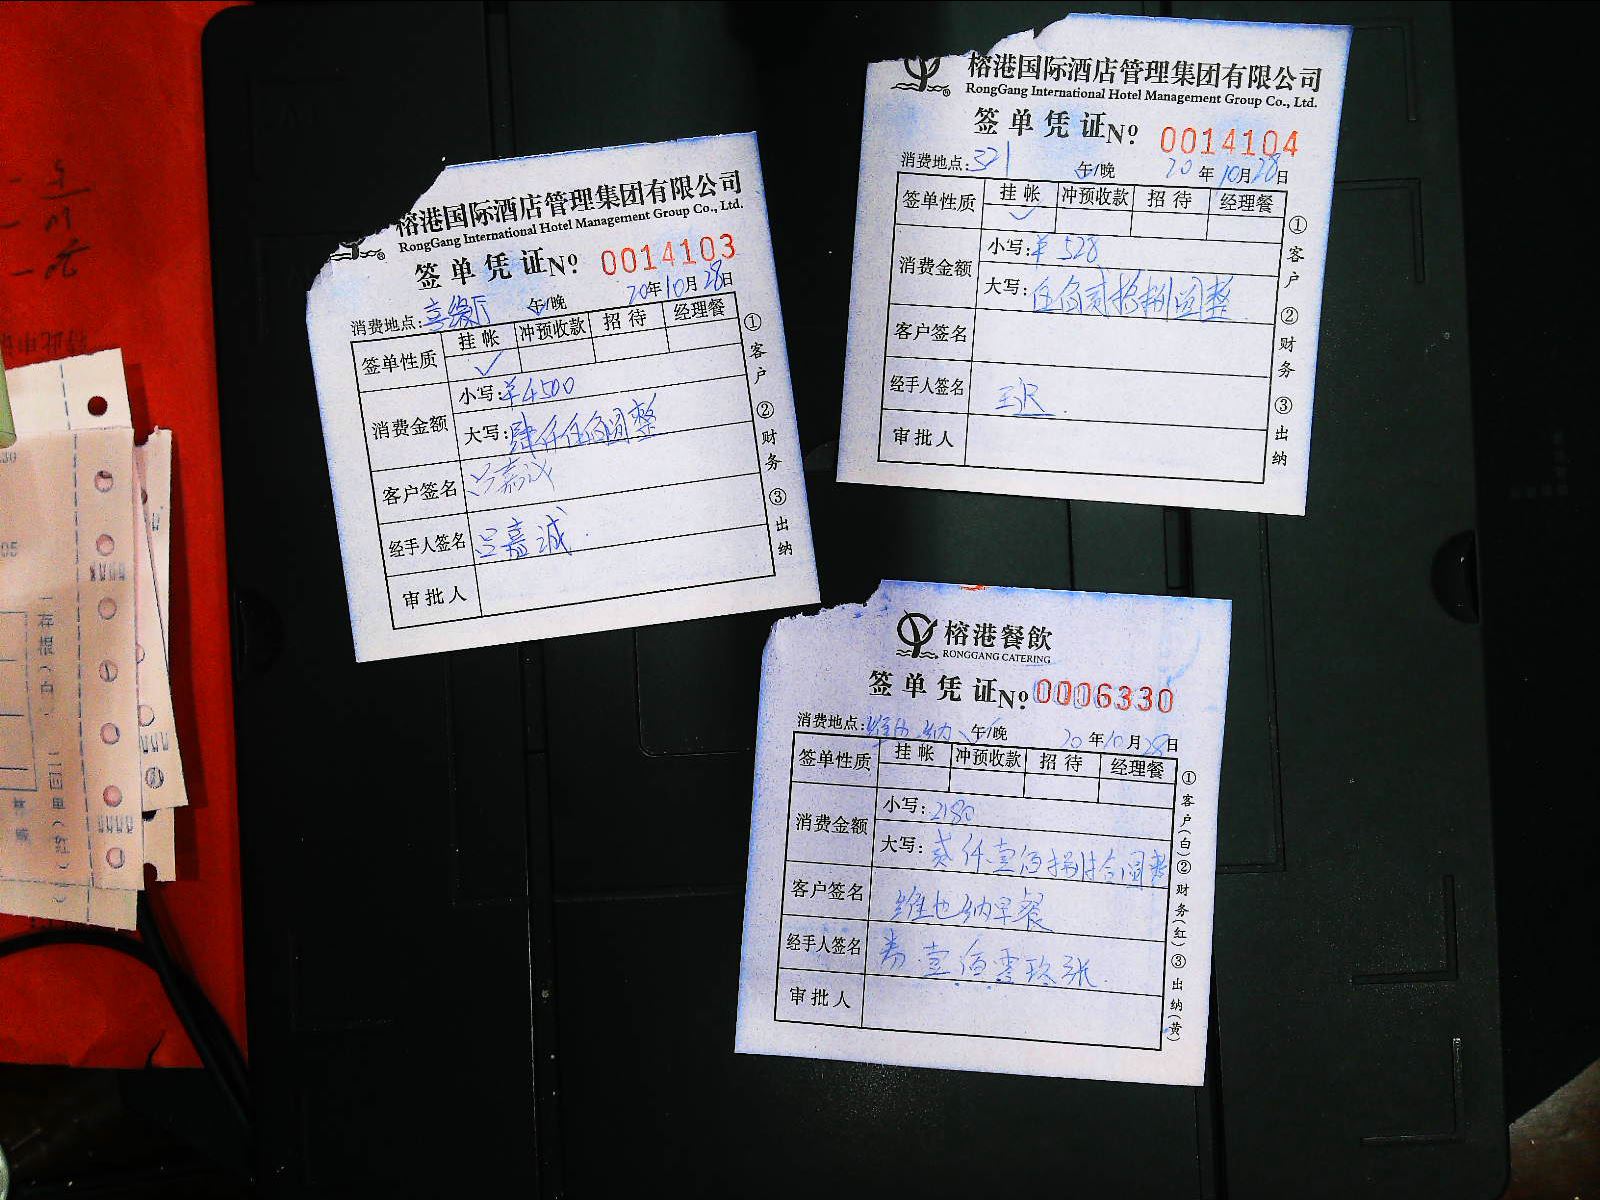 榕港国际酒店管理集团有限公司
RongGang International Hotel Management Group Co., Ltd.
签单凭证 No. 0014103
消费地点: 喜缘厅 午/晚 20年10月28日
签单性质 挂帐 冲预收款 招待 经理餐
✓
消费金额 小写: ¥4500
大写: 肆仟伍佰圆整
客户签名 吕嘉诚
经手人签名 吕嘉诚
审批人
①客户 ②财务 ③出纳
榕港国际酒店管理集团有限公司
RongGang International Hotel Management Group Co., Ltd.
签单凭证 No. 0014104
消费地点: 321 午/晚 20年10月28日
签单性质 挂帐 冲预收款 招待 经理餐
✓
消费金额 小写: ¥528
大写: 伍佰贰拾捌圆整
客户签名
经手人签名 王
审批人
①客户 ②财务 ③出纳
榕港餐飲
RONGGANG CATERING
签单凭证 No. 0006330
消费地点: 维也纳 午/晚 20年10月28日
签单性质 挂帐 冲预收款 招待 经理餐
消费金额 小写: 2180
大写: 贰仟壹佰捌拾圆整
客户签名 维也纳早餐
经手人签名 券壹佰零玖张
审批人
①客户(白) ②财务(红) ③出纳(黄)
存根(白)
二回单(红)